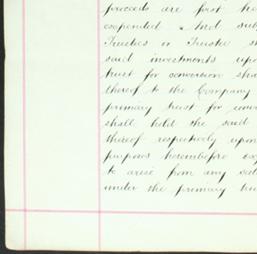 proceeds are first
expended. And
Trustees or Trustee
said investments upo
trust for conversion sha
thereof to the Company
primary trust for conv
shall hold the said
thereof respectively upon
purposes hereinbefore
to arise from any
under the primary